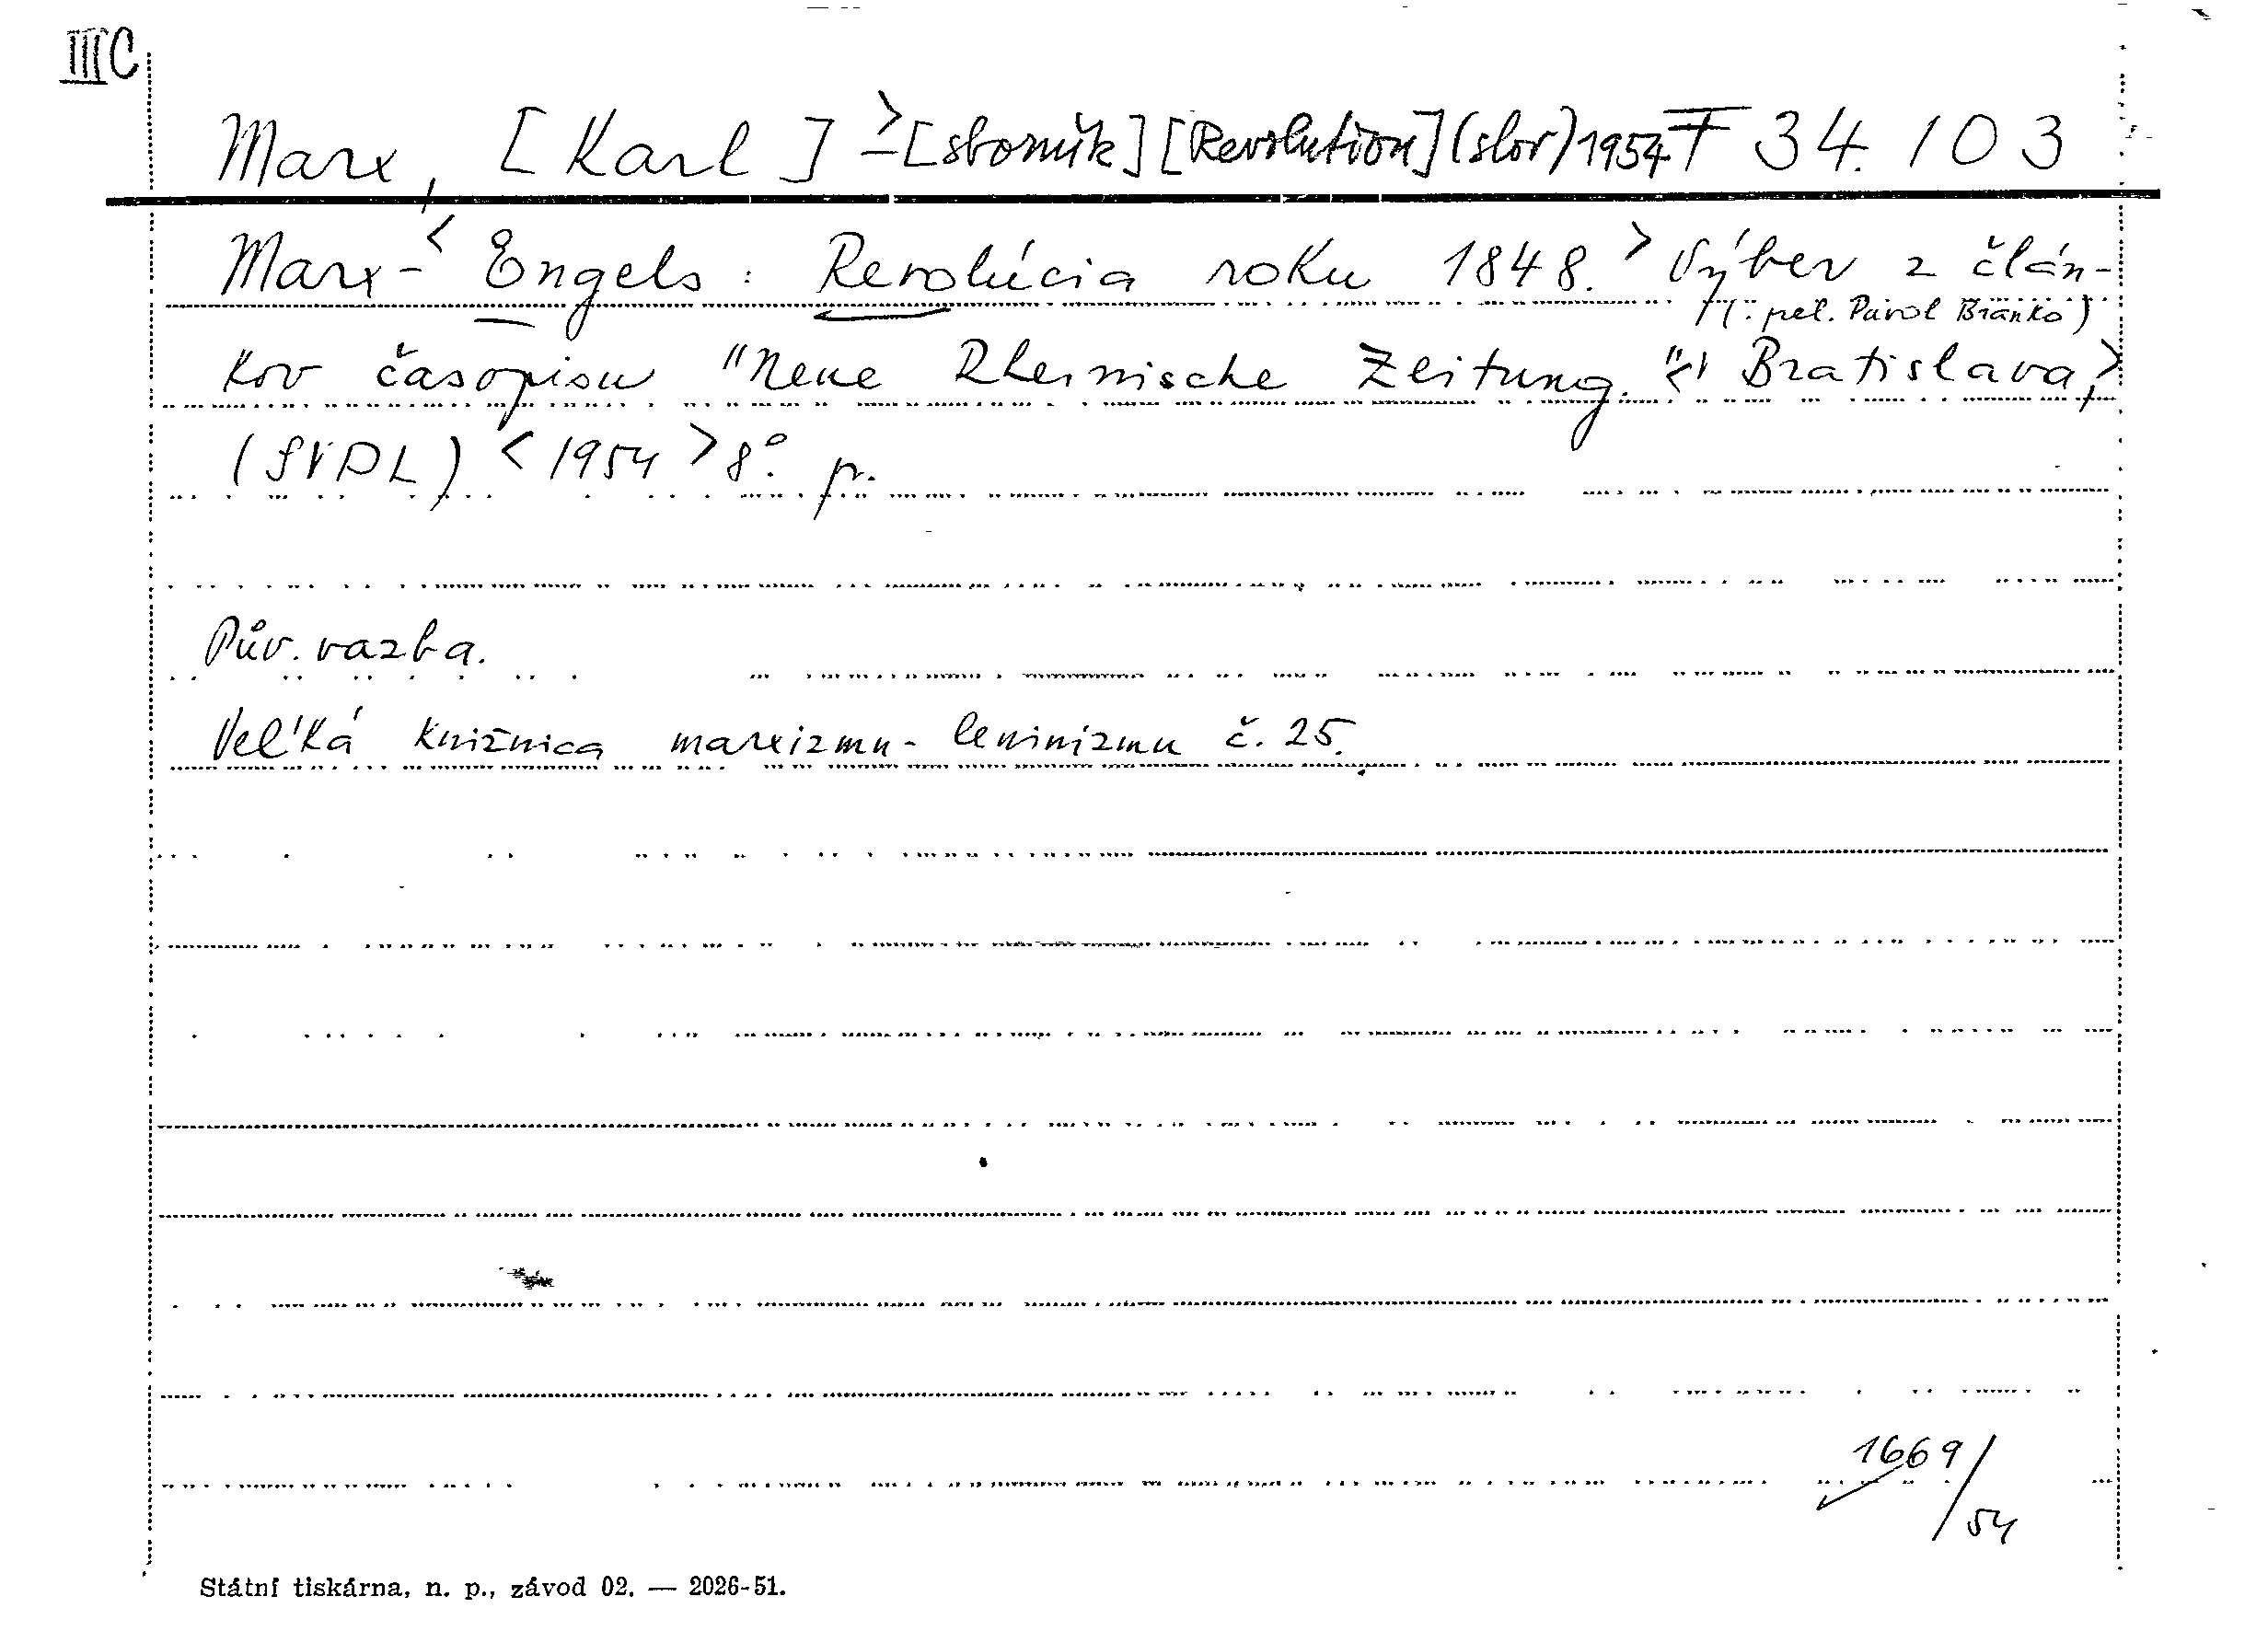 IIIC
Marx, [Karl] > - [sborník] [Revolution] (slov) 1954 F 34.103
Marx - < Engels : Revolúcia roku 1848. > Výber z člán-
(: Pavol Branko)
kov časopisu "Neue Rheinische Zeitung." < Bratislava, >
(SVPL) < 1954 > 8°. pr.
Pův. vazba.
Veľká knižnica marxizmu-leninizmu č. 25.
1669/54
Státní tiskárna, n. p., závod 02. — 2026-51.